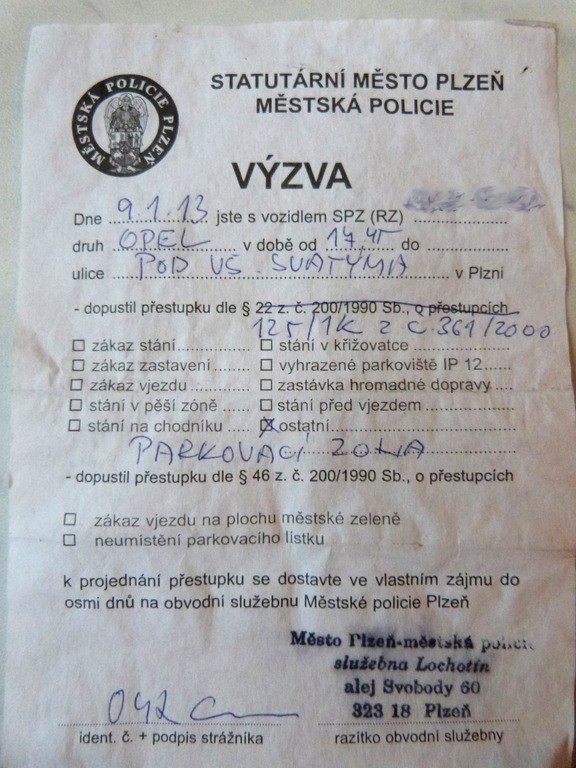 MĚSTSKÁ POLICIE PLZEŇ
STATUTÁRNÍ MĚSTO PLZEŇ
MĚSTSKÁ POLICIE
VÝZVA
Dne 9.1.13 jste s vozidlem SPZ (RZ)
druh OPEL v době od 14,45 do
ulice POD VŠ. SVATÝMI v Plzni
- dopustil přestupku dle § 22 z. č. 200/1990 Sb., o přestupcích
125/1K z č. 361/2000
zákaz stání stání v křižovatce
zákaz zastavení vyhrazené parkoviště IP 12
zákaz vjezdu zastávka hromadné dopravy
stání v pěší zóně stání před vjezdem
stání na chodníku ostatní
PARKOVACÍ ZONA
- dopustil přestupku dle § 46 z. č. 200/1990 Sb., o přestupcích
zákaz vjezdu na plochu městské zeleně
neumístění parkovacího lístku
k projednání přestupku se dostavte ve vlastním zájmu do
osmi dnů na obvodní služebnu Městské policie Plzeň
Město Plzeň-městská policie
služebna Lochotín
alej Svobody 60
323 18 Plzeň
042
ident. č. + podpis strážníka razítko obvodní služebny